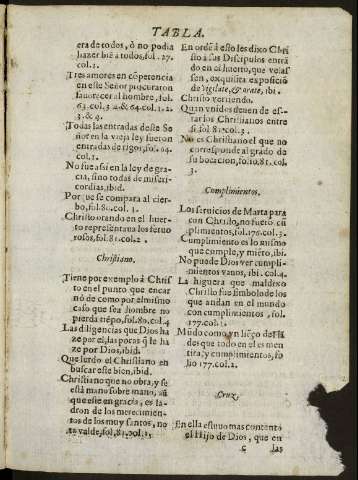 TABLA.
era de todos, ò no podia
hazer biẽ a todos, fol. 27.
col. 1.
Tres amores en cõpetencia
en este Señor procuraron
fauorecer al hombre, fol.
63. col. 3. & 64. col. 1. 2.
3. & 4.
Todas las entradas deste Se
ñor en la vieja ley fueron
entradas de rigor, fol. 64.
col. 1.
No fue assi en la ley de gra-
cia, sino todas de miseri-
cordias, ibid.
Por que se compara al cier-
bo, fol. 81. col. 1.
Christo orando en el huer-
to representaua los feruo
rosos, fol. 81. col. 2.
Christiano.
Tiene por exemplo à Chris
to en el punto que encar
nò de como por el mismo
caso que sea hombre no
pierda tiẽpo, fol. 80. col. 4
Las diligencias que Dios ha
ze por el, las pocas q̃ le ha
ze por Dios, ibid.
Que lerdo el Christiano en
buscar este bien, ibid.
Christiano que no obra, y se
està mano sobre mano, aũ
que estè en gracia, es la-
dron de los merecimien-
tos de los muy santos, no
te valde, fol. 81. col. 1.
En ordẽ a esto les dixo Chri
sto a sus Discipulos entrã
do en el huerto, que velas
sen, exquisita exposiciõ
de vigilate, & orate, ibi.
Christo yernendo.
Quan vnidos deuen de es-
tar los Christianos entre
si, fol. 81. col. 3.
No es Christiano el que no
corresponde al grado de
su bocacion, fol. 81. col.
3.
Cumplimientos.
Los seruicios de Marta para
con Christo, no fuerõ cũ
plimientos, fol. 175. col. 3.
Cumplimiento es lo mismo
que cumple, y miẽto, ibi.
No puede Dios ver cumpli-
mientos vanos, ibi. col. 4.
La higuera que maldixo
Christo fue simbolo de los
que andan en el mundo
con cumplimientos, fol.
177. col. 1.
Mũdo como vn liẽço de Flã
des que todo en el es men
tira, y cumplimientos, fo
lio 177. col. 2.
Cruz,
En ella estuuo mas contento
el Hijo de Dios, que en
las